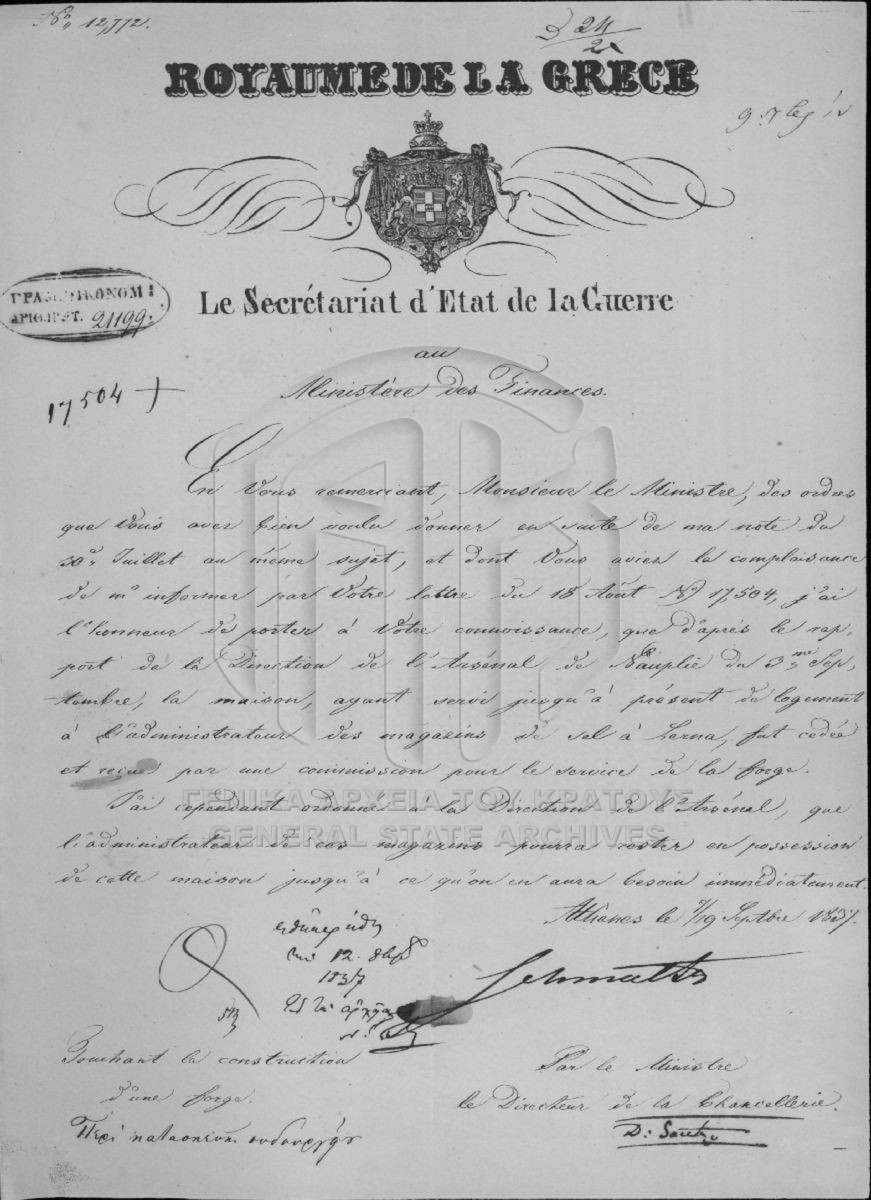 No. 12,772.
24
ROYAUME DE LA GRÈCE
Le Secrétariat d'Etat de la Guerre
21199.
au
Ministère des Finances.
17504
En Vous remerciant, Monsieur le Ministre, des ordres
que Vous avez bien voulu donner en suite de ma note du
30. Juillet au même sujet, et dont Vous aviez la complaisance
de m'informer par Votre lettre du 18 Août No 17,504, j'ai
l'honneur de porter à Votre connoissance, que d'après le rap-
port de la Direction de l'Arsénal de Nauplie du 3me Sep-
tembre, la maison, ayant servi jusqu'à présent de logement
à l'administrateur des magazins de sel à Lerna, fut cédée
et reçue par une commission pour le service de la forge.
J'ai cependant ordonné à la Direction de l'Arsénal, que
l'administrateur de ces magazins pourra rester en possession
de cette maison jusqu'à ce qu'on en aura besoin immédiatement.
Athènes le 7/19 Septbre 1837.
12
1837
Schmaltz
Touchant la construction
d'une forge.
Περί κατασκευής
Par le Ministre
le Directeur de la Chancellerie.
ΓΕΝΙΚΑ ΑΡΧΕΙΑ ΤΟΥ ΚΡΑΤΟΥΣ
GENERAL STATE ARCHIVES